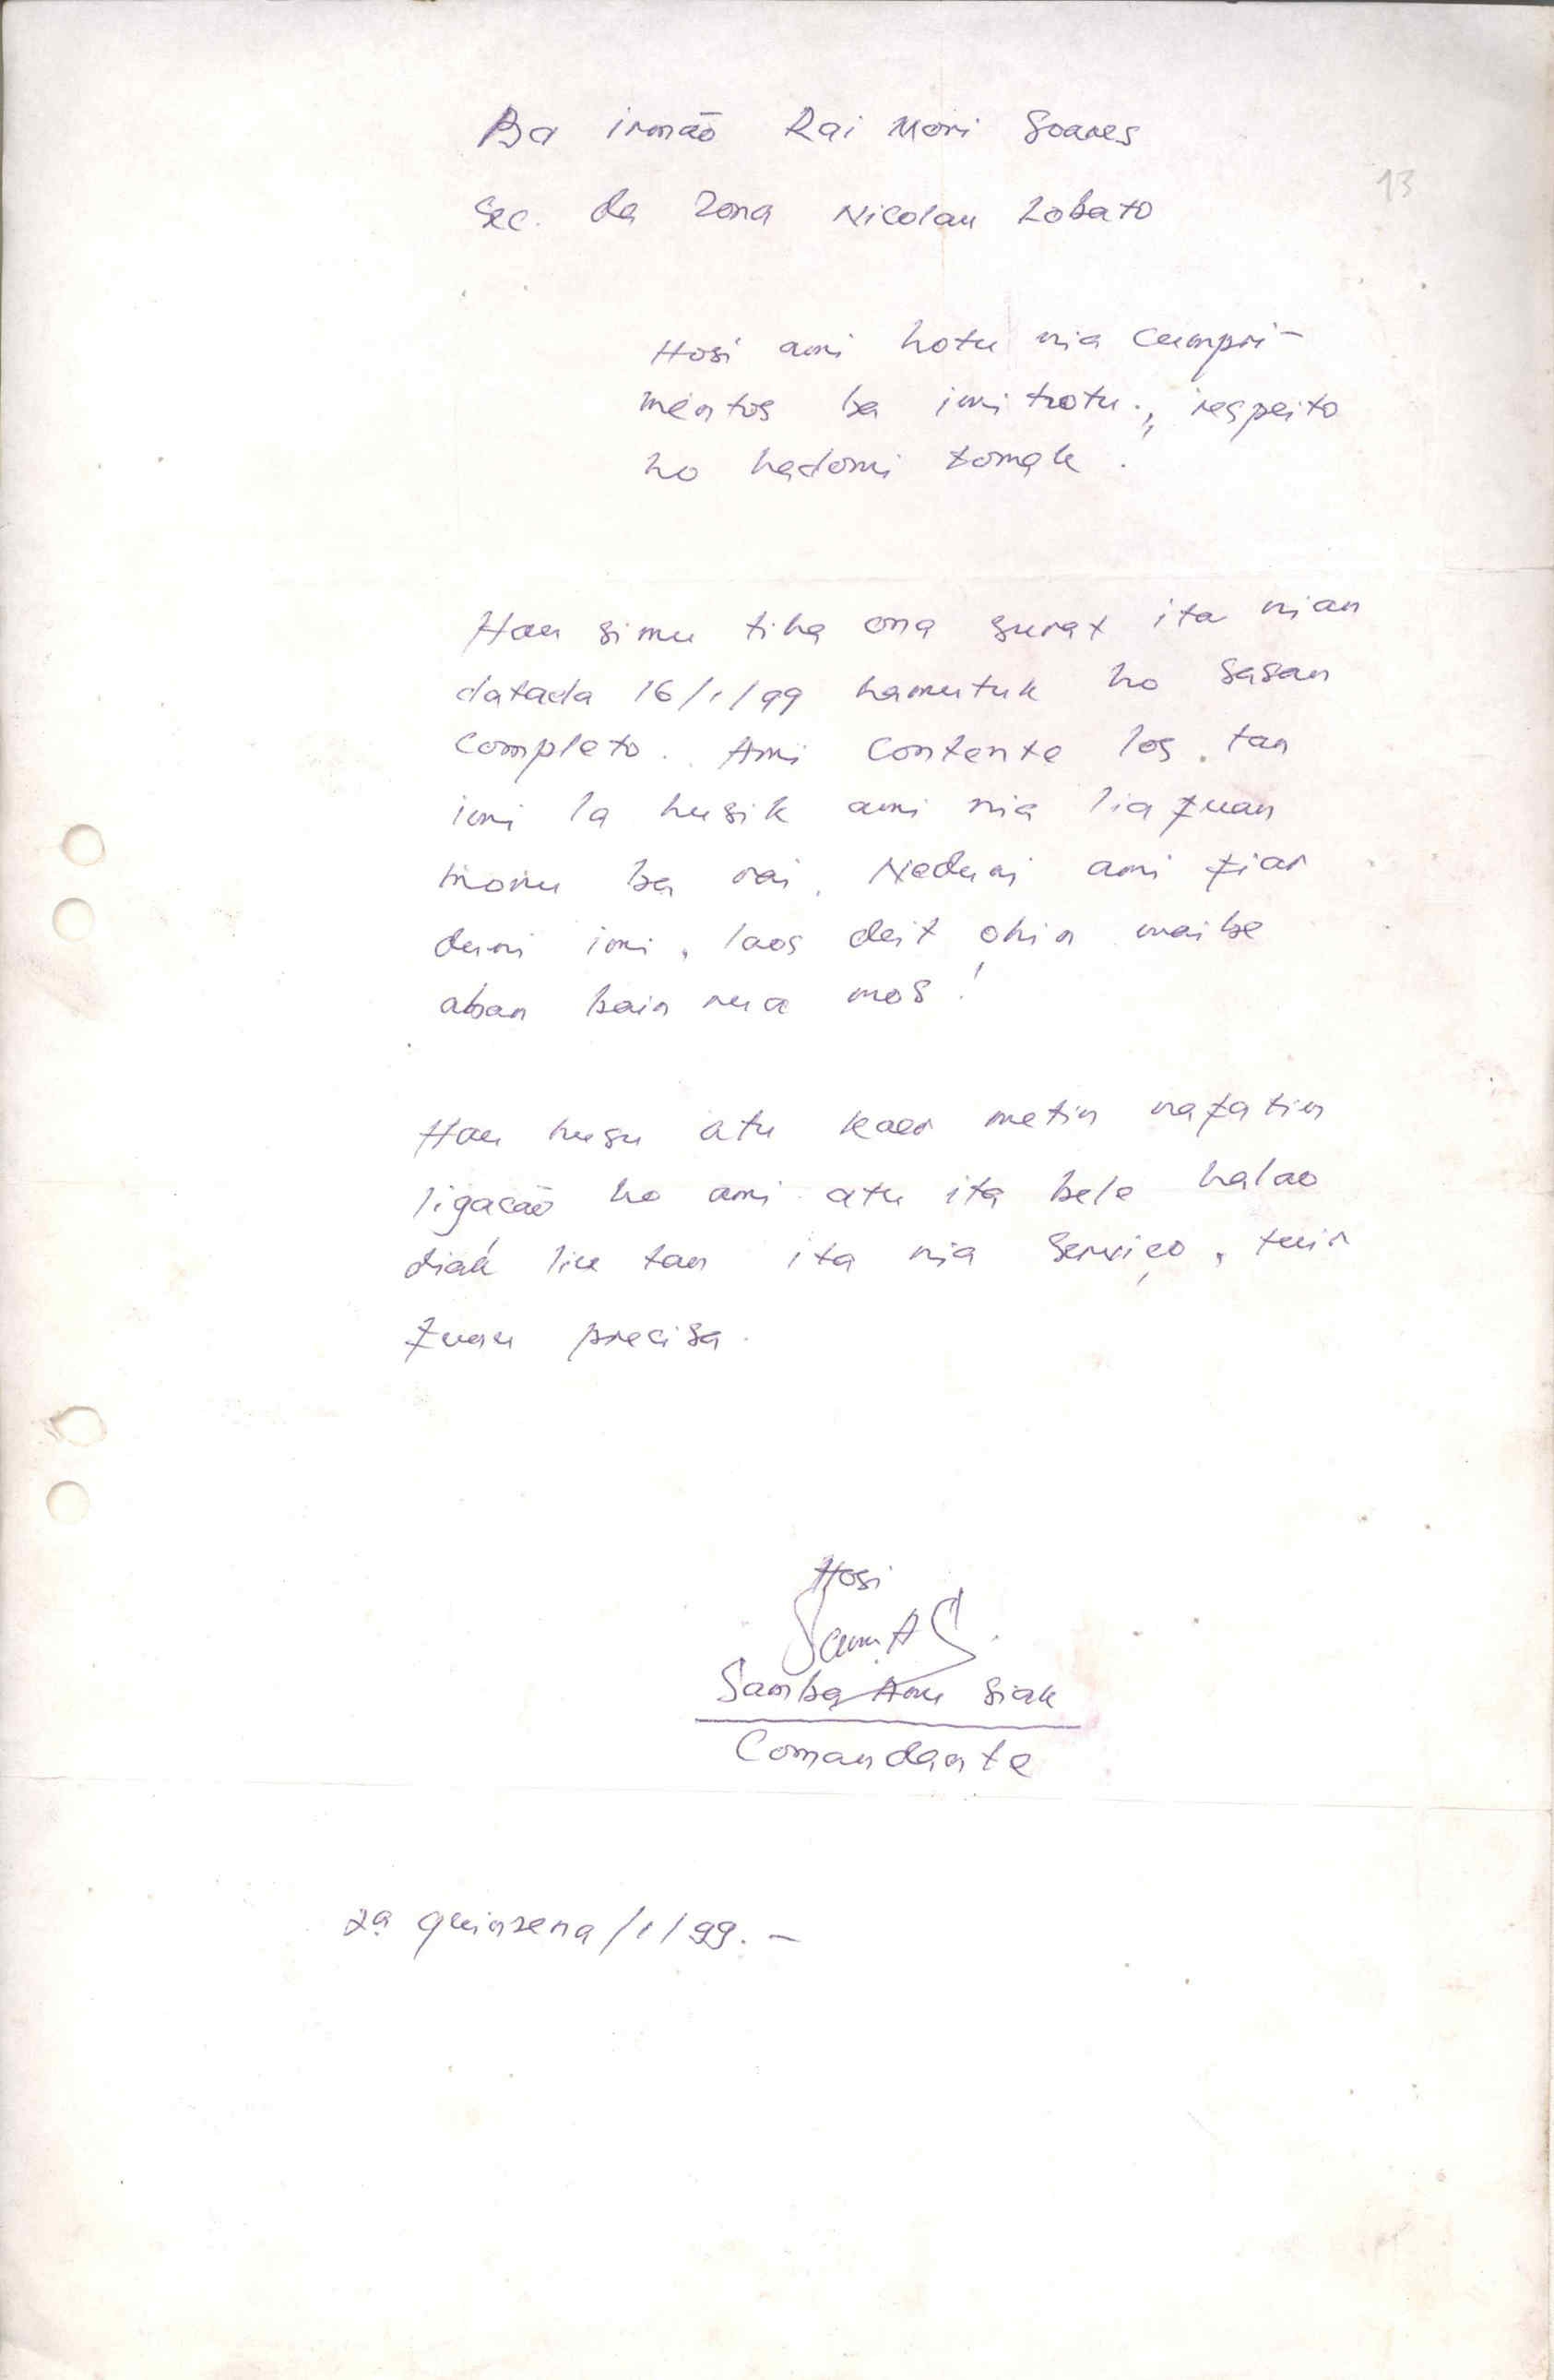 Ba irmão Rai Mori Soares
13
Sec. da Zona Nicolau Lobato
Hosi ami hotu nia cumpri-
mentos ba imi hotu., respeito
ho hadomi tomak.
Hau simu tiha ona surat ita nian
datada 16/1/99 hamutuk ho sasan
completo. Ami contente los, tan
imi la husik ami nia lia fuan
monu ba rai. Neduni ami fiar
duni imi, laos deit ohin maibe
aban bain rua mos!
Hau husu atu kaer metin nafatin
ligação ho ami atu ita bele halao
diak liu tan ita nia serviço, tuir
fuan precisa.
Hosi
Sam.AS
Samba Amu Siak
Comandante
2ª quinzena/1/99.-